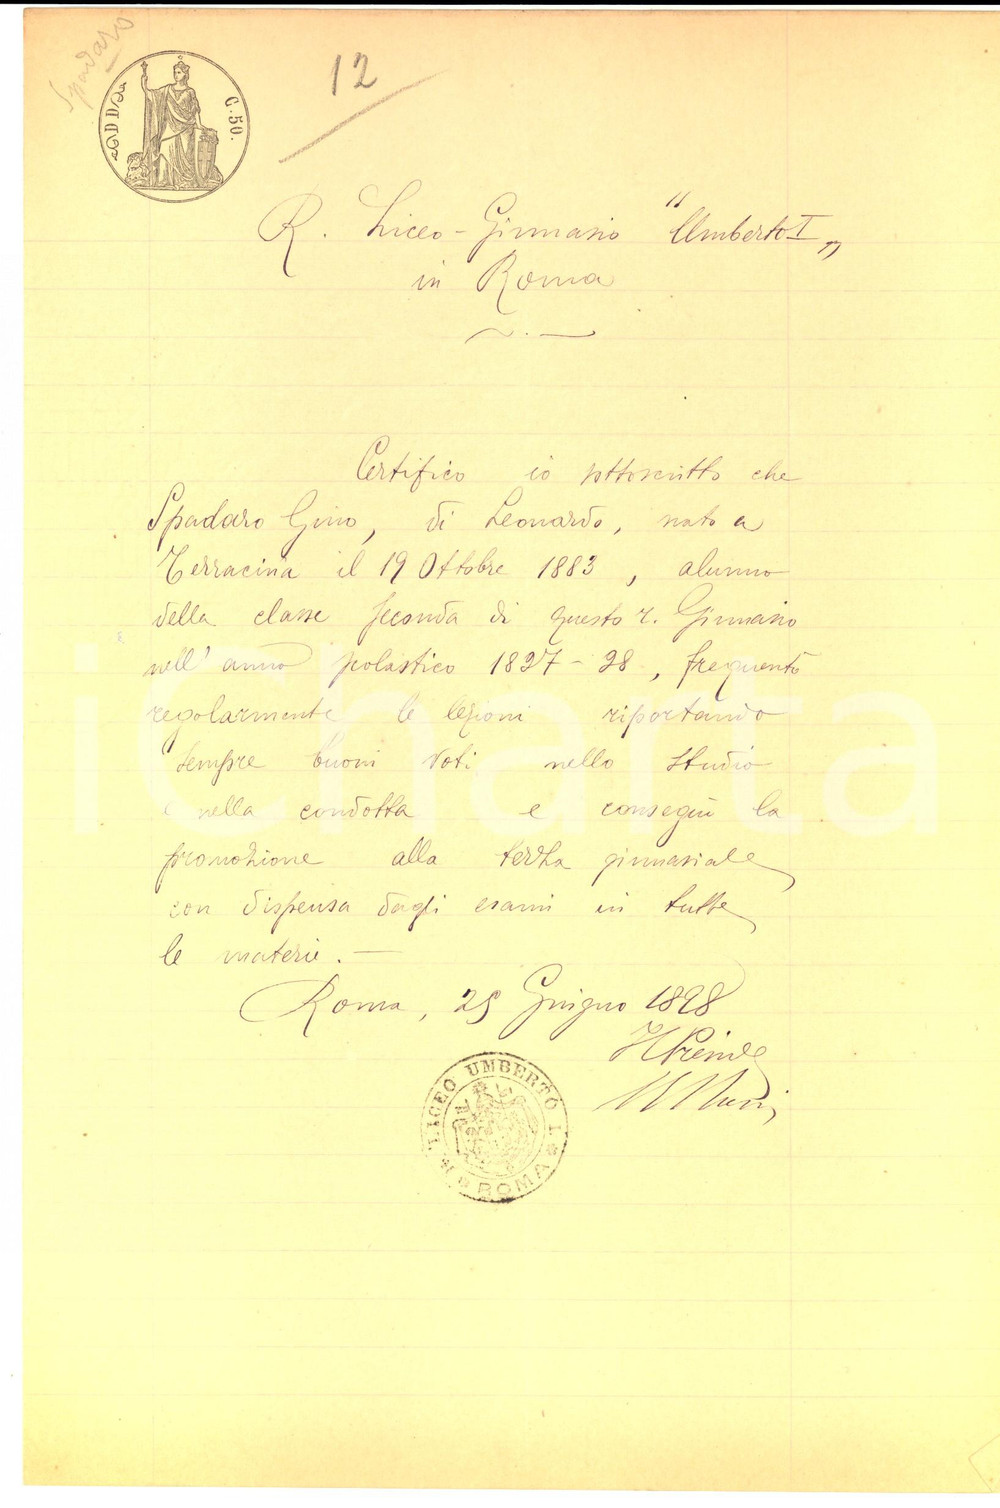 Spadaro
12
C. 50.
R. Liceo-Ginnasio "Umberto I„
in Roma
Certifico io sottoscritto che
Spadaro Gino, di Leonardo, nato a
Terracina il 19 Ottobre 1883, alunno
della classe seconda di questo r. Ginnasio
nell'anno scolastico 1897-98, frequentò
regolarmente le lezioni riportando
sempre buoni voti nello studio
e nella condotta e conseguì la
promozione alla terza ginnasiale
con dispensa dagli esami in tutte
le materie. —
Roma, 25 Giugno 1898
Il Preside
LICEO UMBERTO I. ROMA
iCharta